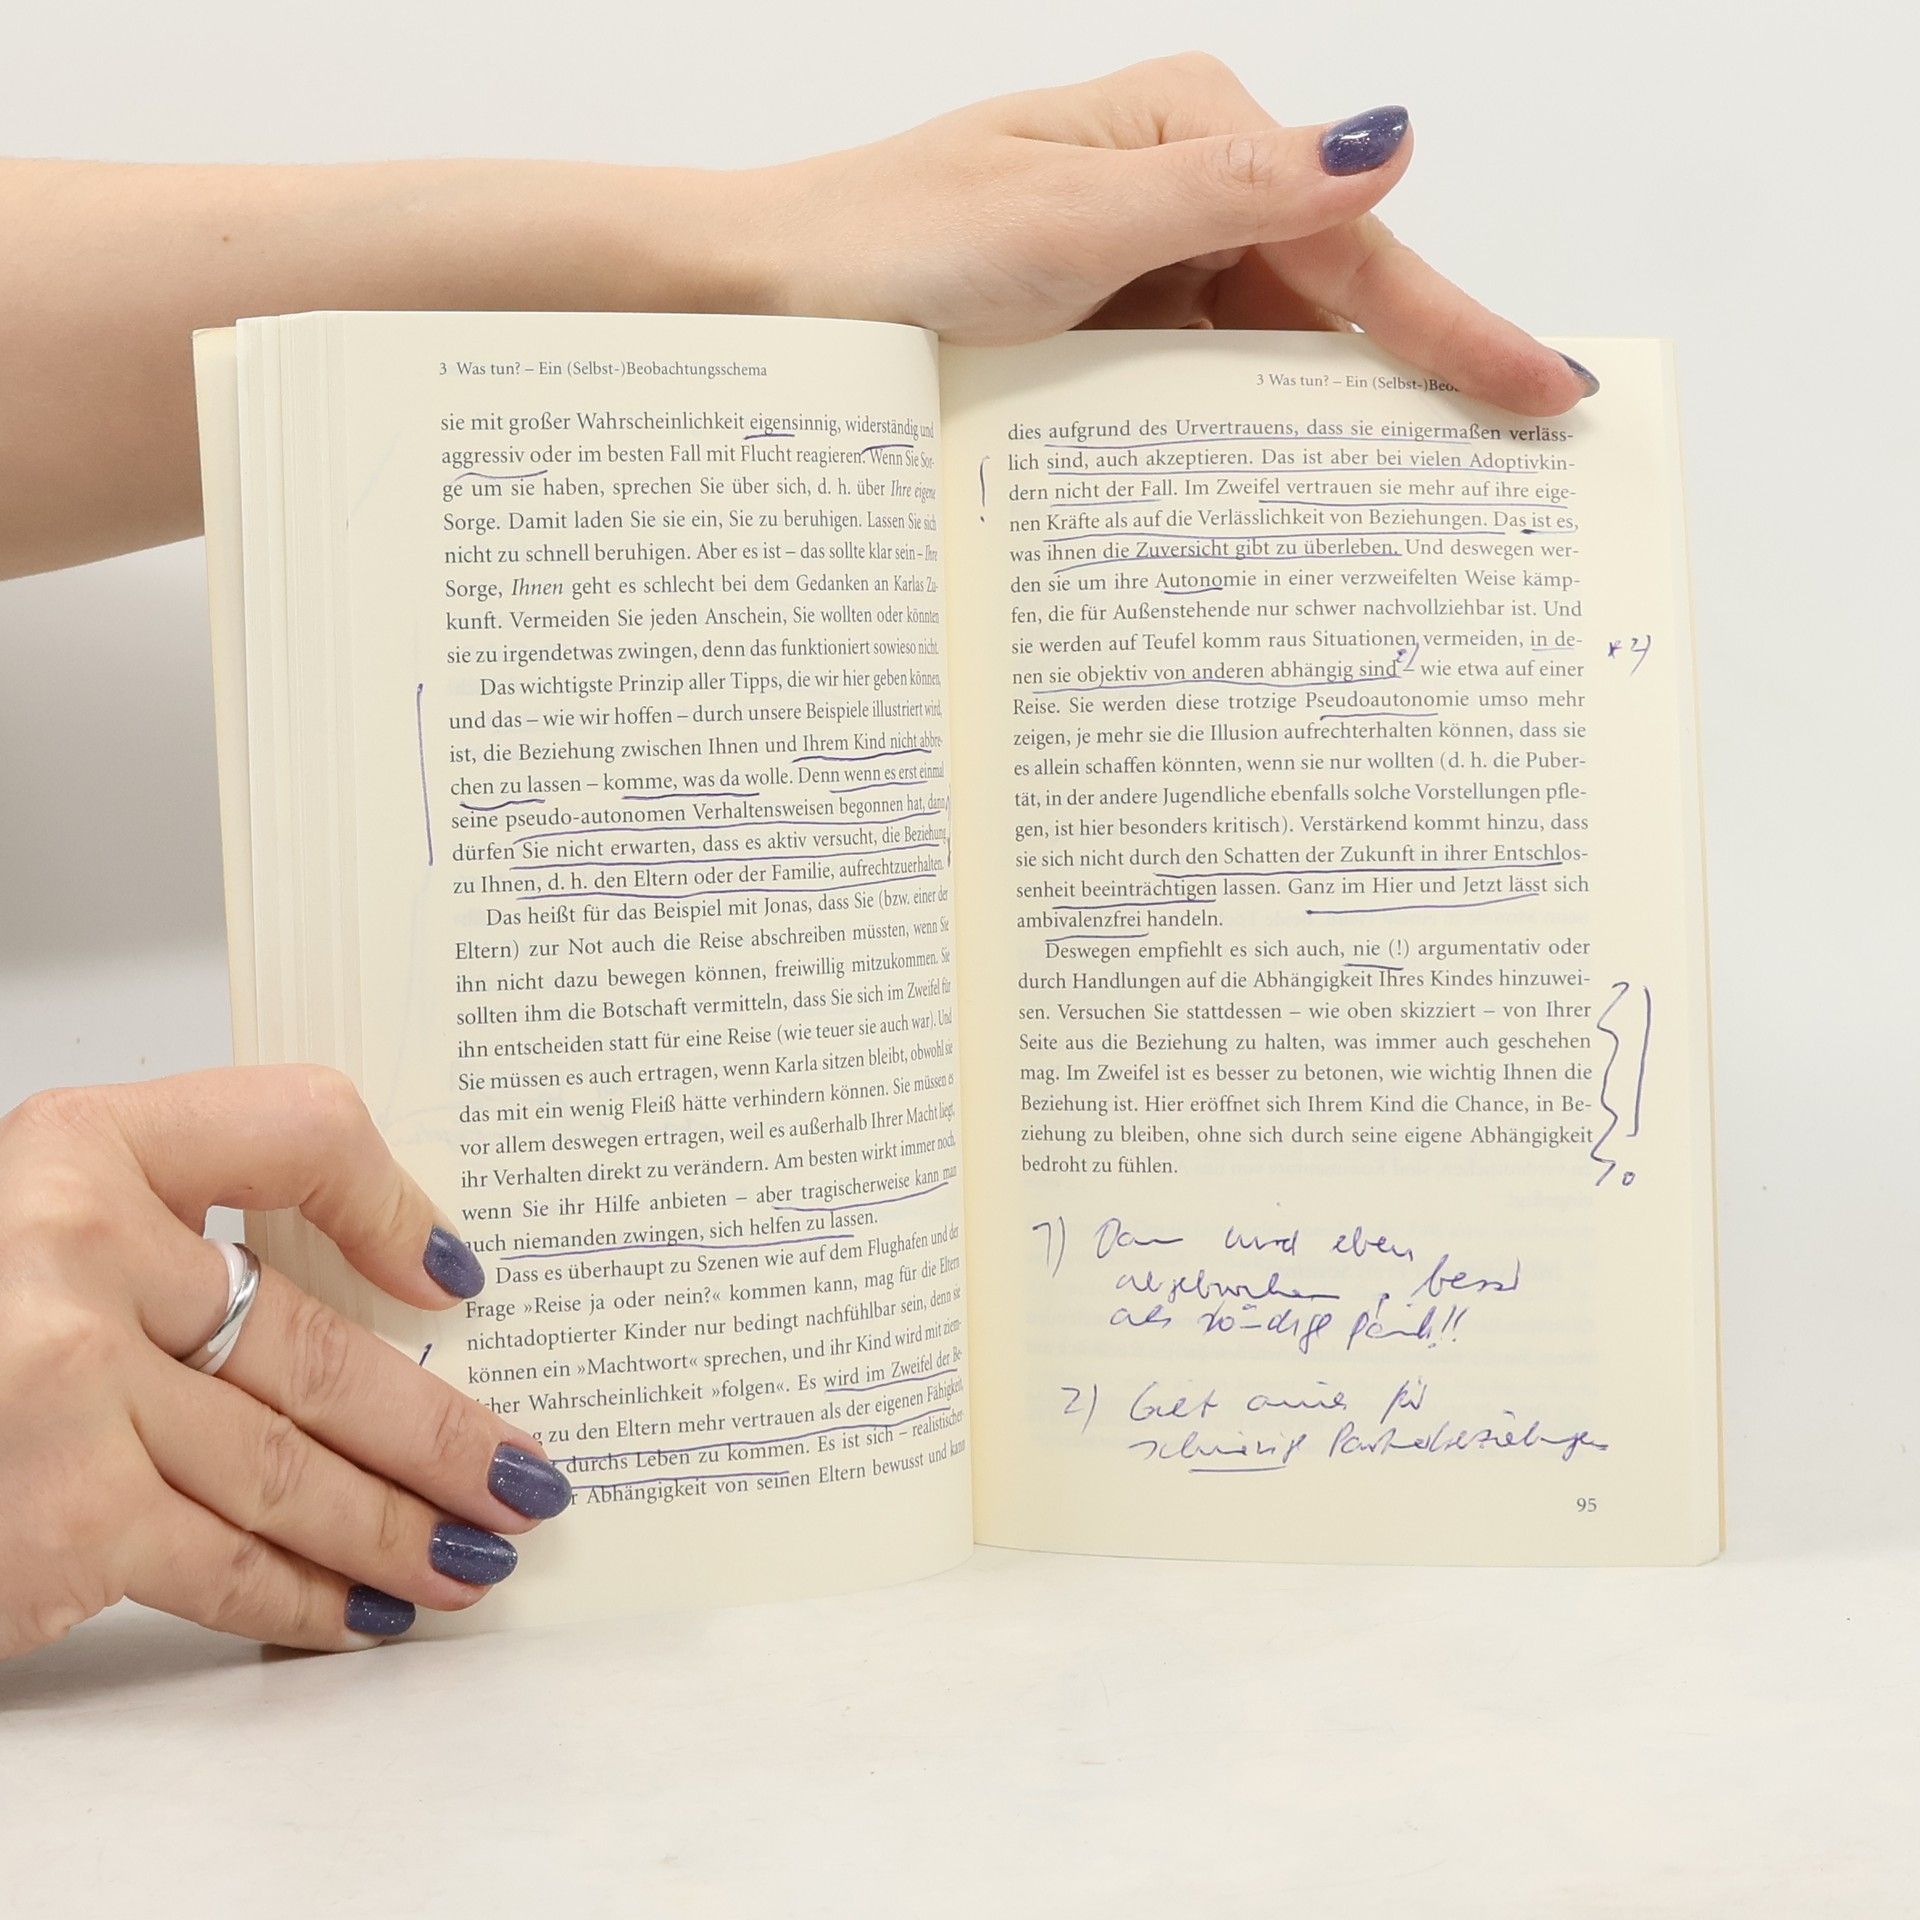 3 Was tun? – Ein (Selbst-)Beobachtungsschema
sie mit großer Wahrscheinlichkeit eigensinnig, widerständig und
aggressiv oder im besten Fall mit Flucht reagieren. Wenn Sie Sor-
ge um sie haben, sprechen Sie über sich, d. h. über Ihre eigene
Sorge. Damit laden Sie sie ein, Sie zu beruhigen. Lassen Sie sich
nicht zu schnell beruhigen. Aber es ist – das sollte klar sein – Ihre
Sorge, Ihnen geht es schlecht bei dem Gedanken an Karlas Zu-
kunft. Vermeiden Sie jeden Anschein, Sie wollten oder könnten
sie zu irgendetwas zwingen, denn das funktioniert sowieso nicht.
Das wichtigste Prinzip aller Tipps, die wir hier geben können,
und das – wie wir hoffen – durch unsere Beispiele illustriert wird,
ist, die Beziehung zwischen Ihnen und Ihrem Kind nicht abbre-
chen zu lassen – komme, was da wolle. Denn wenn es erst einmal
seine pseudo-autonomen Verhaltensweisen begonnen hat, dann
dürfen Sie nicht erwarten, dass es aktiv versucht, die Beziehung
zu Ihnen, d. h. den Eltern oder der Familie, aufrechtzuerhalten.
Das heißt für das Beispiel mit Jonas, dass Sie (bzw. einer der
Eltern) zur Not auch die Reise abschreiben müssten, wenn Sie
ihn nicht dazu bewegen können, freiwillig mitzukommen. Sie
sollten ihm die Botschaft vermitteln, dass Sie sich im Zweifel für
ihn entscheiden statt für eine Reise (wie teuer sie auch war). Und
Sie müssen es auch ertragen, wenn Karla sitzen bleibt, obwohl sie
das mit ein wenig Fleiß hätte verhindern können. Sie müssen es
vor allem deswegen ertragen, weil es außerhalb Ihrer Macht liegt,
ihr Verhalten direkt zu verändern. Am besten wirkt immer noch,
wenn Sie ihr Hilfe anbieten – aber tragischerweise kann man
auch niemanden zwingen, sich helfen zu lassen.
Dass es überhaupt zu Szenen wie auf dem Flughafen und der
Frage »Reise ja oder nein?« kommen kann, mag für die Eltern
nichtadoptierter Kinder nur bedingt nachfühlbar sein, denn sie
können ein »Machtwort« sprechen, und ihr Kind wird mit ziem-
icher Wahrscheinlichkeit »folgen«. Es wird im Zweifel der Be-
g zu den Eltern mehr vertrauen als der eigenen Fähigkeit,
durchs Leben zu kommen. Es ist sich – realistischer-
r Abhängigkeit von seinen Eltern bewusst und kann
3 Was tun? – Ein (Selbst-)Beo
dies aufgrund des Urvertrauens, dass sie einigermaßen verläss-
lich sind, auch akzeptieren. Das ist aber bei vielen Adoptivkin-
dern nicht der Fall. Im Zweifel vertrauen sie mehr auf ihre eige-
nen Kräfte als auf die Verlässlichkeit von Beziehungen. Das ist es,
was ihnen die Zuversicht gibt zu überleben. Und deswegen wer-
den sie um ihre Autonomie in einer verzweifelten Weise kämp-
fen, die für Außenstehende nur schwer nachvollziehbar ist. Und
sie werden auf Teufel komm raus Situationen vermeiden, in de-
* 2)
nen sie objektiv von anderen abhängig sind 2) – wie etwa auf einer
Reise. Sie werden diese trotzige Pseudoautonomie umso mehr
zeigen, je mehr sie die Illusion aufrechterhalten können, dass sie
es allein schaffen könnten, wenn sie nur wollten (d. h. die Puber-
tät, in der andere Jugendliche ebenfalls solche Vorstellungen pfle-
gen, ist hier besonders kritisch). Verstärkend kommt hinzu, dass
sie sich nicht durch den Schatten der Zukunft in ihrer Entschlos-
senheit beeinträchtigen lassen. Ganz im Hier und Jetzt lässt sich
ambivalenzfrei handeln.
Deswegen empfiehlt es sich auch, nie (!) argumentativ oder
durch Handlungen auf die Abhängigkeit Ihres Kindes hinzuwei-
sen. Versuchen Sie stattdessen – wie oben skizziert – von Ihrer
Seite aus die Beziehung zu halten, was immer auch geschehen
mag. Im Zweifel ist es besser zu betonen, wie wichtig Ihnen die
Beziehung ist. Hier eröffnet sich Ihrem Kind die Chance, in Be-
ziehung zu bleiben, ohne sich durch seine eigene Abhängigkeit
bedroht zu fühlen.
1) Dann wird eben
abgebrochen, besser
als ständige Panik!!
2) Gilt auch für
schwierige Partnerbeziehungen
95